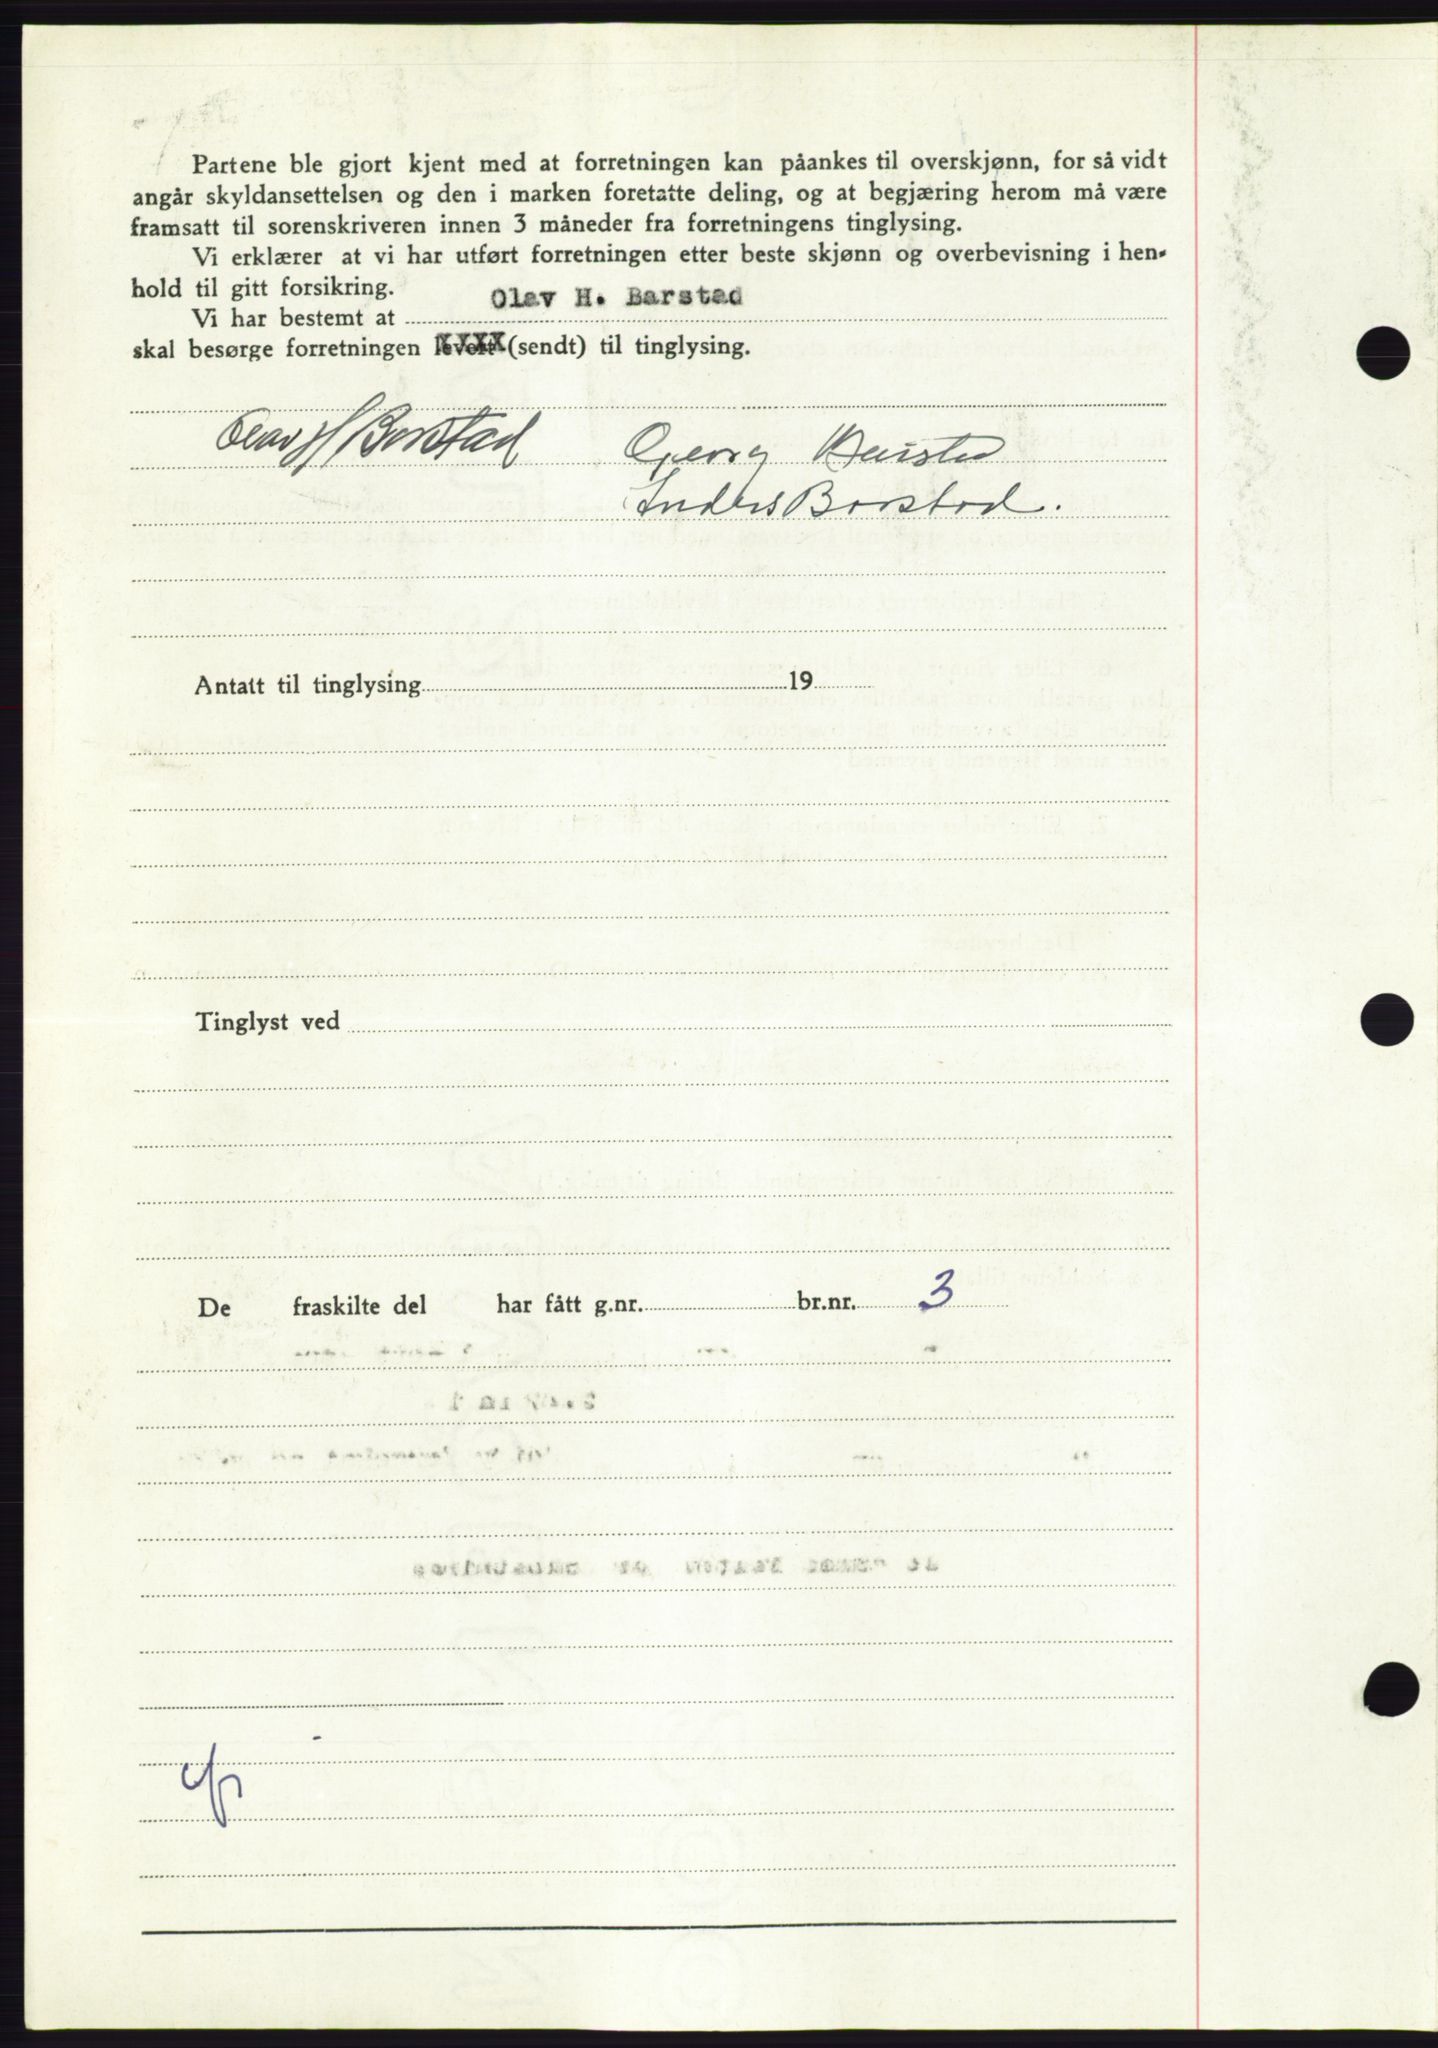 Partene ble gjort kjent med at forretningen kan påankes til overskjønn, for så vidt
angår skyldansettelsen og den i marken foretatte deling, og at begjæring herom må være
framsatt til sorenskriveren innen 3 måneder fra forretningens tinglysing.
Vi erklærer at vi har utført forretningen etter beste skjønn og overbevisning i hen-
hold til gitt forsikring.
Vi har bestemt at Olav H. Barstad
skal besørge forretningen levert (sendt) til tinglysing.
Olav H Barstad Georg
Anders Barstad.
Antatt til tinglysing 19
Tinglyst ved
De fraskilte del har fått g.nr. br.nr. 3